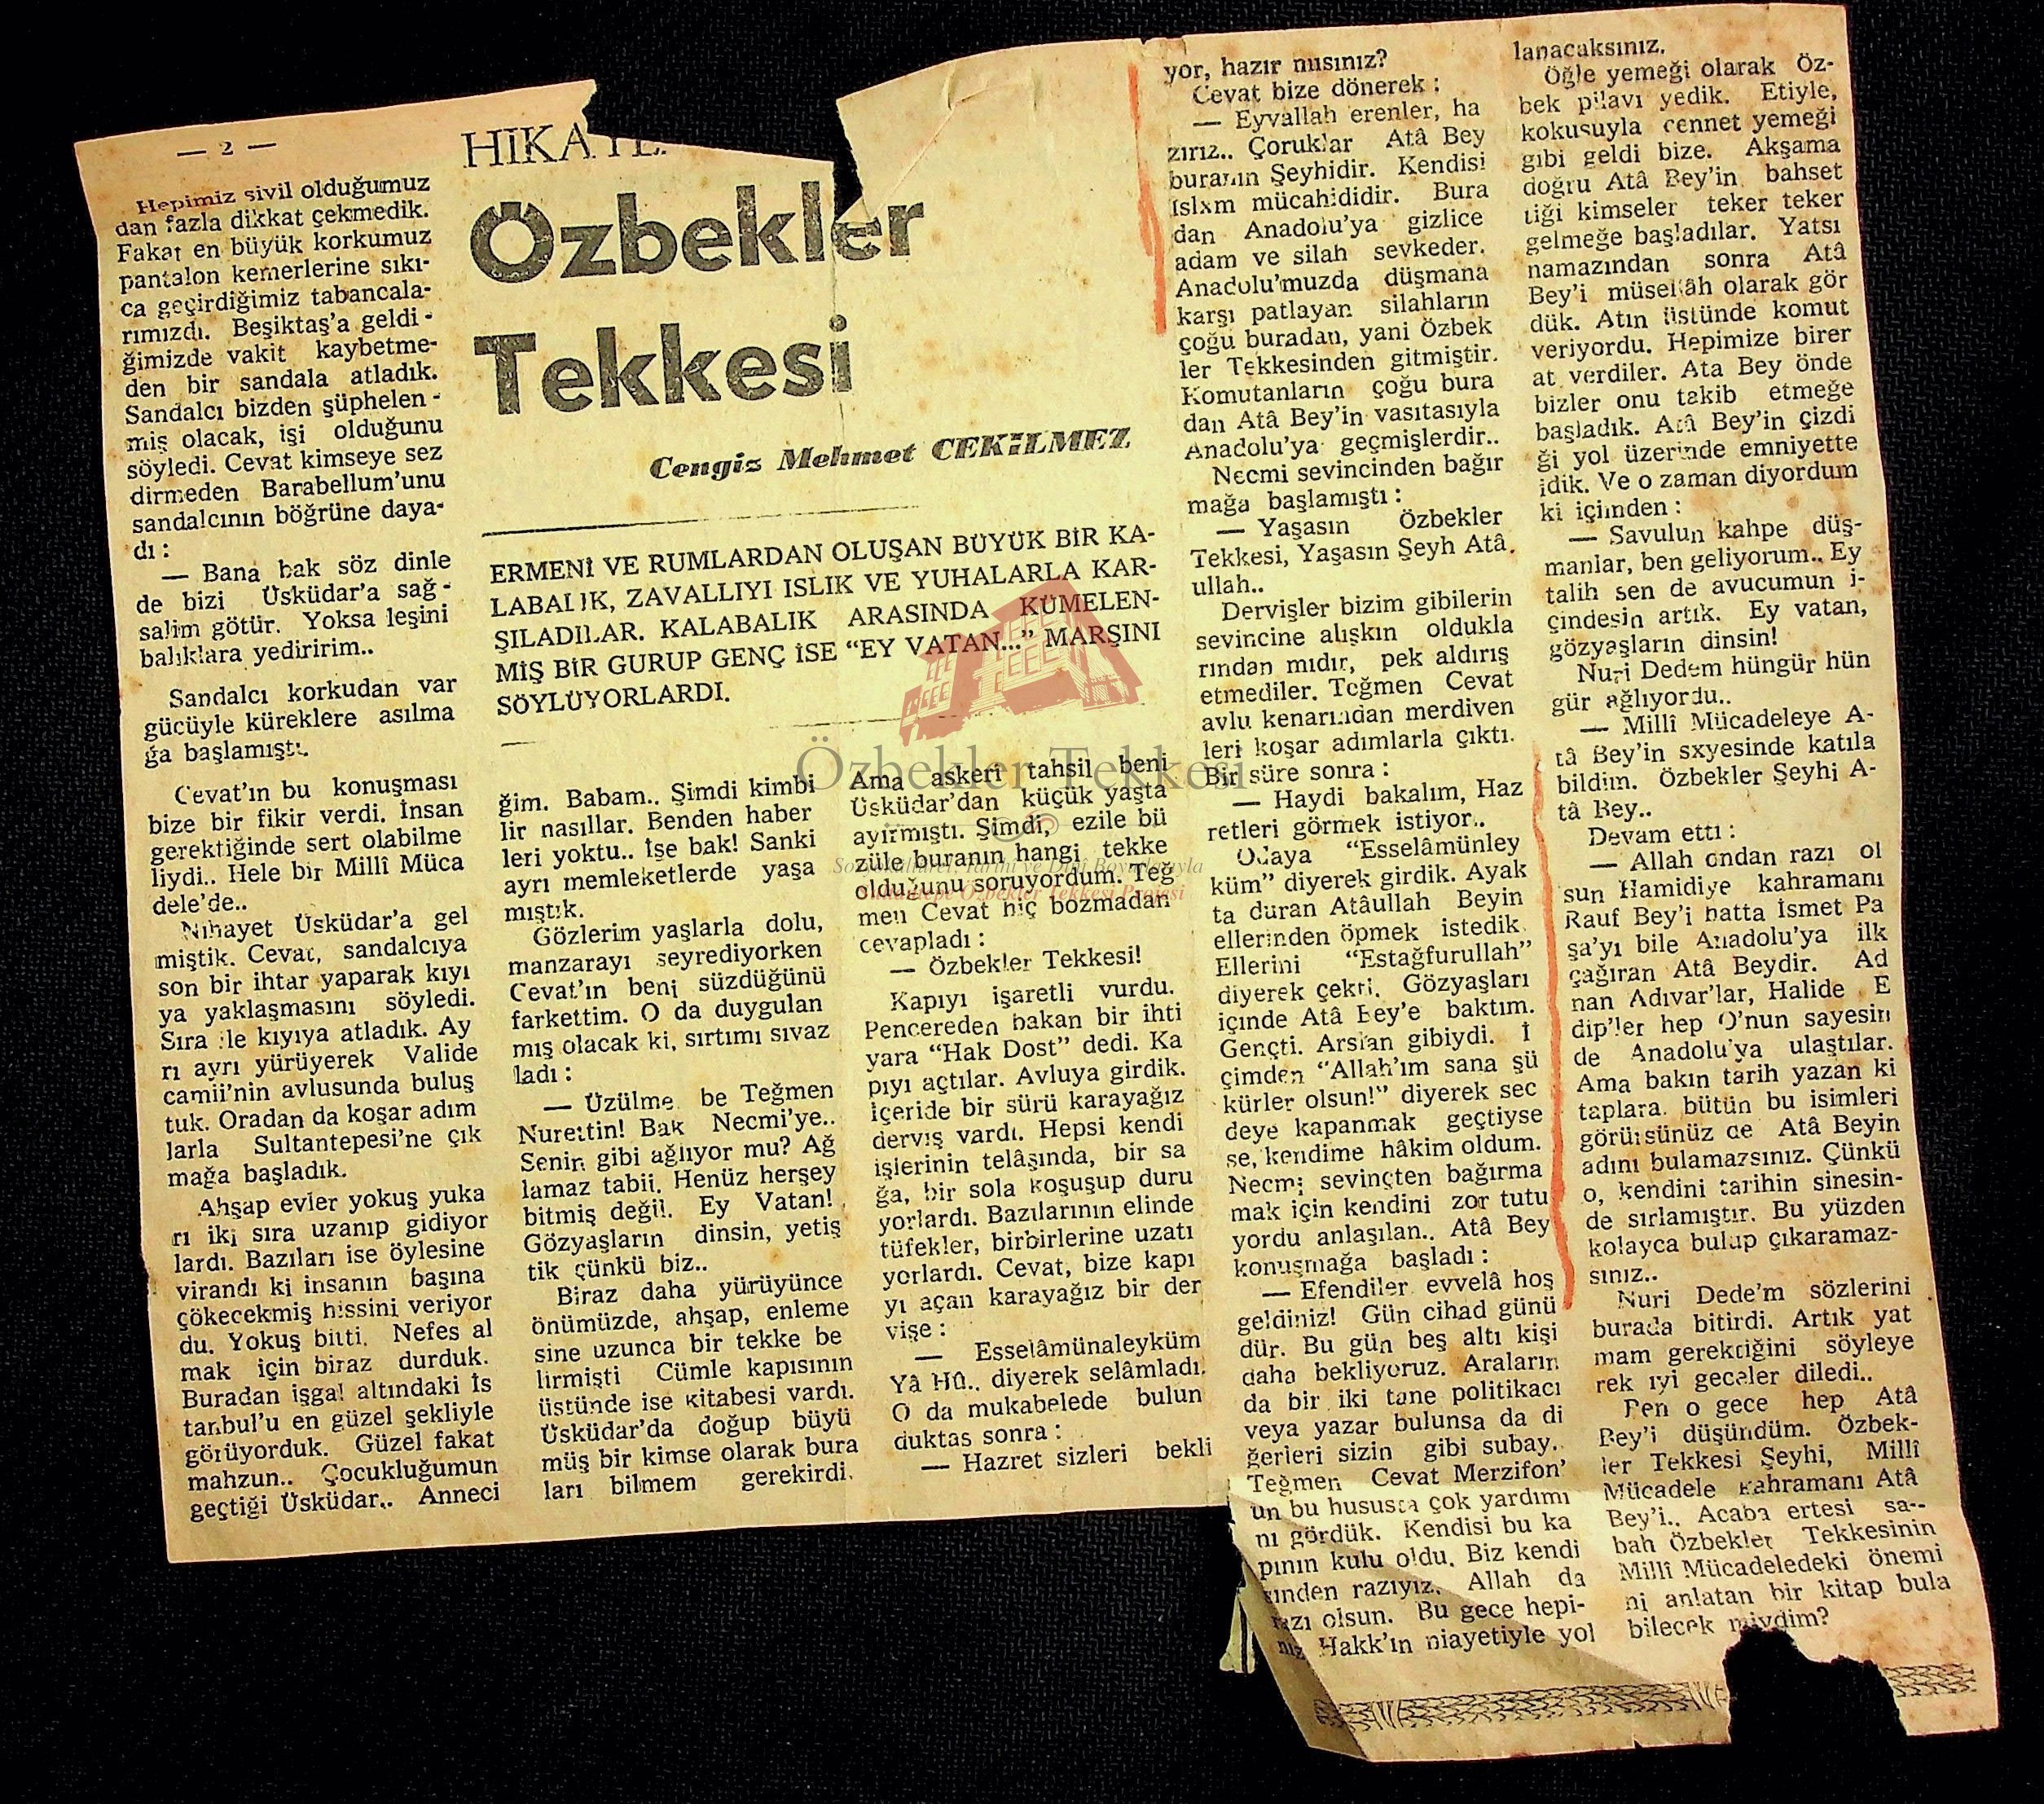 — 2 —
Hepimiz sivil olduğumuz
dan fazla dikkat çekmedik.
Fakat en büyük korkumuz
pantalon kemerlerine sıkı-
ca geçirdiğimiz tabancala-
rımızdı. Beşiktaş'a geldi -
ğimizde vakit kaybetme-
den bir sandala atladık.
Sandalcı bizden şüphelen -
miş olacak, işi olduğunu
söyledi. Cevat kimseye sez
dirmeden Barabellum'unu
sandalcının böğrüne daya-
dı :
— Bana bak söz dinle
de bizi Üsküdar'a sağ -
salim götür. Yoksa leşini
balıklara yediririm..
Sandalcı korkudan var
gücüyle küreklere asılma
ğa başlamıştı.
Cevat'ın bu konuşması
bize bir fikir verdi. İnsan
gerektiğinde sert olabilme
liydi.. Hele bir Millî Müca
dele'de..
Nihayet Üsküdar'a gel
miştik. Cevat, sandalcıya
son bir ihtar yaparak kıyı
ya yaklaşmasını söyledi.
Sıra ile kıyıya atladık. Ay
rı ayrı yürüyerek Valide
camii'nin avlusunda buluş
tuk. Oradan da koşar adım
larla Sultantepesi'ne çık
mağa başladık.
Ahşap evler yokuş yuka
rı iki sıra uzanıp gidiyor
lardı. Bazıları ise öylesine
virandı ki insanın başına
çökecekmiş hissini veriyor
du. Yokuş bitti. Nefes al
mak için biraz durduk.
Buradan işgal altındaki İs
tanbul'u en güzel şekliyle
görüyorduk. Güzel fakat
mahzun.. Çocukluğumun
geçtiği Üsküdar.. Anneci
HİKAYE
Özbekler
Tekkesi
Cengiz Mehmet CEKİLMEZ
ERMENİ VE RUMLARDAN OLUŞAN BÜYÜK BİR KA-
LABALIK, ZAVALLIYI ISLIK VE YUHALARLA KAR-
ŞILADILAR. KALABALIK ARASINDA KÜMELEN-
MİŞ BİR GURUP GENÇ İSE “EY VATAN...” MARŞINI
SÖYLÜYORLARDI.
ğim. Babam.. Şimdi kimbi
lir nasıllar. Benden haber
leri yoktu.. İşe bak! Sanki
ayrı memleketlerde yaşa
mıştık.
Gözlerim yaşlarla dolu,
manzarayı seyrediyorken
Cevat'ın beni süzdüğünü
farkettim. O da duygulan
mış olacak ki, sırtımı sıvaz
ladı :
— Üzülme be Teğmen
Nurettin! Bak Necmi'ye..
Senin gibi ağlıyor mu? Ağ
lamaz tabii. Henüz herşey
bitmiş değil. Ey Vatan!
Gözyaşların dinsin, yetiş
tik çünkü biz..
Biraz daha yürüyünce
önümüzde, ahşap, enleme
sine uzunca bir tekke be
lirmişti Cümle kapısının
üstünde ise kitabesi vardı.
Üsküdar'da doğup büyü
müş bir kimse olarak bura
ları bilmem gerekirdi.
Ama askeri tahsil beni
Üsküdar'dan küçük yaşta
ayırmıştı. Şimdi, ezile bü
züle buranın hangi tekke
olduğunu soruyordum. Teğ
men Cevat hiç bozmadan
cevapladı :
— Özbekler Tekkesi!
Kapıyı işaretli vurdu.
Pencereden bakan bir ihti
yara “Hak Dost” dedi. Ka
pıyı açtılar. Avluya girdik.
İçeride bir sürü karayağız
derviş vardı. Hepsi kendi
işlerinin telâşında, bir sa
ğa, bir sola koşuşup duru
yorlardı. Bazılarının elinde
tüfekler, birbirlerine uzatı
yorlardı. Cevat, bize kapı
yı açan karayağız bir der
vişe :
— Esselâmünaleyküm
Yâ Hû.. diyerek selâmladı.
O da mukabelede bulun
duktas sonra :
— Hazret sizleri bekli
yor, hazır mısınız?
Cevat bize dönerek :
— Eyvallah erenler, ha
zırız.. Çoruklar Atâ Bey
buranın Şeyhidir. Kendisi
İslxm mücahididir. Bura
dan Anadolu'ya gizlice
adam ve silah sevkeder.
Anadolu'muzda düşmana
karşı patlayan silahların
çoğu buradan, yani Özbek
ler Tekkesinden gitmiştir.
Komutanların çoğu bura
dan Atâ Bey'in vasıtasıyla
Anadolu'ya geçmişlerdir..
Necmi sevincinden bağır
mağa başlamıştı :
— Yaşasın Özbekler
Tekkesi, Yaşasın Şeyh Atâ.
ullah..
Dervişler bizim gibilerin
sevincine alışkın oldukla
rından mıdır, pek aldırış
etmediler. Teğmen Cevat
avlu kenarından merdiven
leri koşar adımlarla çıktı.
Bir süre sonra :
— Haydi bakalım, Haz
retleri görmek istiyor..
Odaya “Esselâmünley
küm” diyerek girdik. Ayak
ta duran Atâullah Beyin
ellerinden öpmek istedik.
Ellerini “Estağfurullah”
diyerek çekti. Gözyaşları
içinde Atâ Bey'e baktım.
Gençti. Arslan gibiydi. İ
çimden “Allah'ım sana şü
kürler olsun!” diyerek sec
deye kapanmak geçtiyse
se, kendime hâkim oldum.
Necmi sevinçten bağırma
mak için kendini zor tutu
yordu anlaşılan.. Atâ Bey
konuşmağa başladı :
— Efendiler evvelâ hoş
geldiniz! Gün cihad günü
dür. Bu gün beş altı kişi
daha bekliyoruz. Araların
da bir iki tane politikacı
veya yazar bulunsa da di
ğerleri sizin gibi subay.
Teğmen Cevat Merzifon'
un bu hususta çok yardımı
nı gördük. Kendisi bu ka
pının kulu oldu. Biz kendi
sinden razıyız. Allah da
razı olsun. Bu gece hepi-
niz Hakk'ın niayetiyle yol
lanacaksınız.
Öğle yemeği olarak Öz-
bek pilavı yedik. Etiyle,
kokusuyla cennet yemeği
gibi geldi bize. Akşama
doğru Atâ Bey'in bahset
tiği kimseler teker teker
gelmeğe başladılar. Yatsı
namazından sonra Atâ
Bey'i müsellâh olarak gör
dük. Atın üstünde komut
veriyordu. Hepimize birer
at verdiler. Ata Bey önde
bizler onu takib etmeğe
başladık. Atâ Bey'in çizdi
ği yol üzerinde emniyette
idik. Ve o zaman diyordum
ki içimden :
— Savulun kahpe düş-
manlar, ben geliyorum.. Ey
talih sen de avucumun i-
çindesin artık. Ey vatan,
gözyaşların dinsin!
Nuri Dedem hüngür hün
gür ağlıyordu..
— Millî Mücadeleye A-
tâ Bey'in sxyesinde katıla
bildim. Özbekler Şeyhi A-
tâ Bey..
Devam etti :
— Allah ondan razı ol
sun Hamidiye kahramanı
Rauf Bey'i hatta İsmet Pa
şa'yı bile Anadolu'ya ilk
çağıran Atâ Beydir. Ad
nan Adıvar'lar, Halide E
dip'ler hep O'nun sayesin
de Anadolu'ya ulaştılar.
Ama bakın tarih yazan ki
taplara. bütün bu isimleri
görürsünüz de Atâ Beyin
adını bulamazsınız. Çünkü
o, kendini tarihin sinesin-
de sırlamıştır. Bu yüzden
kolayca bulup çıkaramaz-
sınız..
Nuri Dede'm sözlerini
burada bitirdi. Artık yat
mam gerektiğini söyleye
rek iyi geceler diledi..
Ben o gece hep Atâ
Bey'i düşündüm. Özbek-
ler Tekkesi Şeyhi, Millî
Mücadele kahramanı Atâ
Bey'i.. Acaba ertesi sa--
bah Özbekler Tekkesinin
Millî Mücadeledeki önemi
ni anlatan bir kitap bula
bilecek miydim?
Özbekler Tekkesi